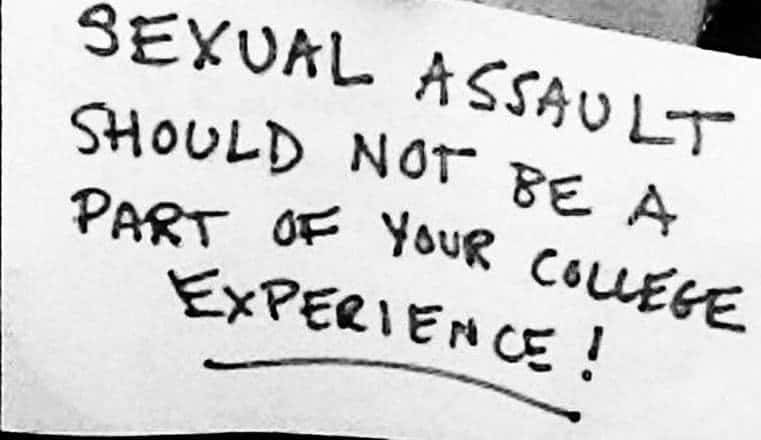 SEXUAL ASSAULT
SHOULD NOT BE A
PART OF YOUR COLLEGE
EXPERIENCE!